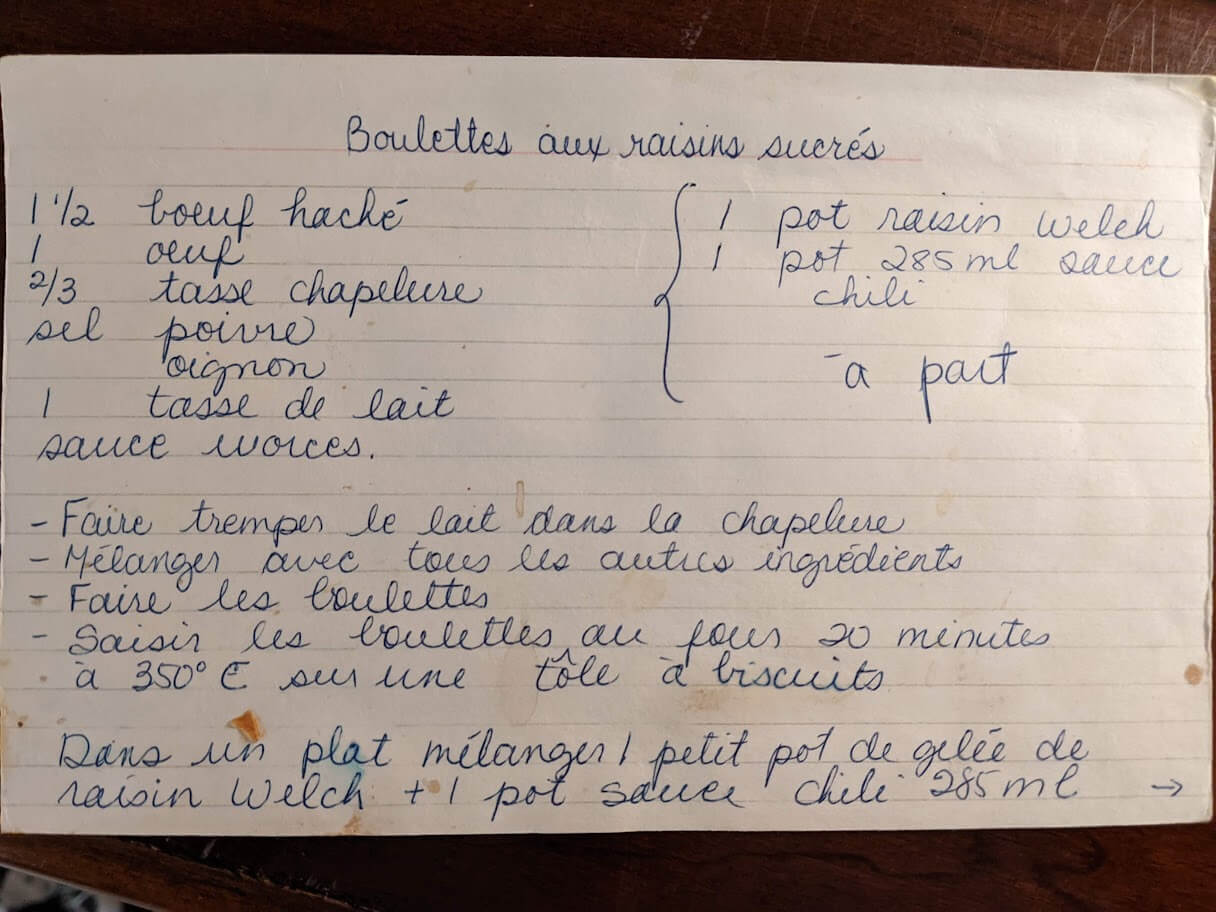 Boulettes aux raisins sucrés
1 1/2 boeuf haché
1 oeuf
2/3 tasse chapelure
sel poivre
oignon
1 tasse de lait
sauce worces.
1 pot raisin welch
1 pot 285 ml sauce
chili
à part
- Faire tremper le lait dans la chapelure
- Mélanger avec tous les autres ingrédients
- Faire les boulettes
- Saisir les boulettes au four 20 minutes
à 350° C sur une tôle à biscuits
Dans un plat mélanger 1 petit pot de gelée de
raisin Welch + 1 pot sauce chili 285 ml →